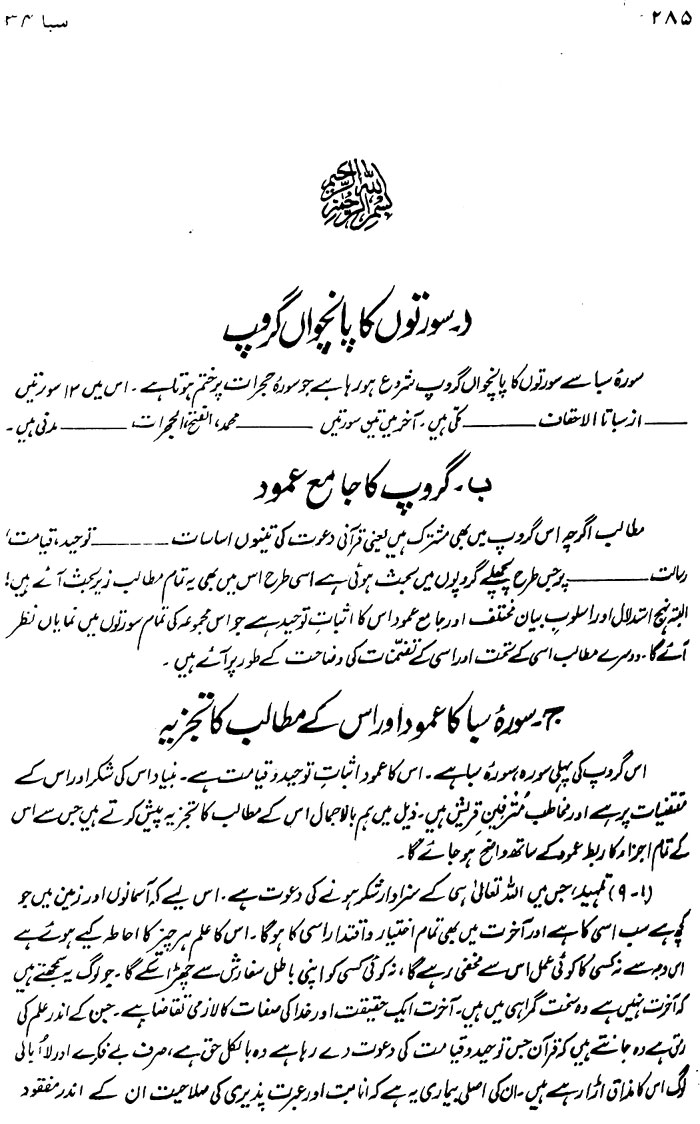 ۲۸۵
سبا ۳۴
بسم الله الرحمن الرحيم
د۔ سورتوں کا پانچواں گروپ
سورۂ سبا سے سورتوں کا پانچواں گروپ شروع ہو رہا ہے جو سورۂ حجرات پر ختم ہوتا ہے۔ اس میں ۱۳ سورتیں
——— از سبا تا الاحقاف ——— مکی ہیں۔ آخر میں تین سورتیں ——— محمد، الفتح، الحجرات، ——— مدنی ہیں۔
ب۔ گروپ کا جامع عمود
مطالب اگرچہ اس گروپ میں بھی مشترک ہیں یعنی قرآنی دعوت کی تینوں اساسات ——— توحید، قیامت،
رسالت ——— پر جس طرح پچھلے گروپوں میں بحث ہوئی ہے اسی طرح اس میں بھی یہ تمام مطالب زیر بحث آئے ہیں؛
البتہ نہج استدلال اور اسلوبِ بیان مختلف اور جامع عمود اس کا اثباتِ توحید ہے جو اس مجموعہ کی تمام سورتوں میں نمایاں نظر
آئے گا۔ دوسرے مطالب اسی کے تحت اور اسی کے تضمنات کی وضاحت کے طور پر آئے ہیں۔
ج۔ سورۂ سبا کا عمود اور اس کے مطالب کا تجزیہ
اس گروپ کی پہلی سورہ، سورۂ سبا ہے۔ اس کا عمود اثباتِ توحید و قیامت ہے۔ بنیاد اس کی شکر اور اس کے
مقتضیات پر ہے اور مخاطب مُترفینِ قریش ہیں۔ ذیل میں ہم بالاجمال اس کے مطالب کا تجزیہ پیش کرتے ہیں جس سے اس
کے تمام اجزاء کا ربط عمود کے ساتھ واضح ہو جائے گا۔
(۱-۹) تمہید، جس میں اللہ تعالیٰ ہی کے سزاوارِ شکر ہونے کی دعوت ہے۔ اس لیے کہ آسمانوں اور زمین میں جو
کچھ ہے سب اسی کا ہے اور آخرت میں بھی تمام اختیار و اقتدار اسی کا ہوگا۔ اس کا علم ہر چیز کا احاطہ کیے ہوئے ہے
اس وجہ سے نہ کسی کا کوئی عمل اس سے مخفی رہے گا، نہ کوئی کسی کو اپنی باطل سفارش سے چھڑا سکے گا۔ جو لوگ یہ سمجھتے ہیں
کہ آخرت نہیں ہے وہ سخت گمراہی میں ہیں۔ آخرت ایک حقیقت اور خدا کی صفات کا لازمی تقاضا ہے۔ جن کے اندر علم کی
رتی ہے وہ جانتے ہیں کہ قرآن جس توحید و قیامت کی دعوت دے رہا ہے وہ بالکل حق ہے، صرف بے فکرے اور لا ابالی
لوگ اس کا مذاق اڑا رہے ہیں۔ ان کی اصلی بیماری یہ ہے کہ انابت اور عبرت پذیری کی صلاحیت ان کے اندر مفقود